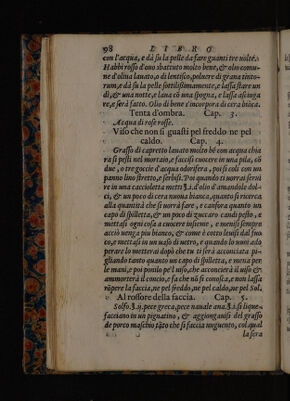 98 LIBRO
con l'acqua, e dà su la pelle da fare guanti tre volte.
Habbi rosso d'ouo sbattuto molto bene, & olio comu-
ne d'oliua lauato, o di lentisco, poluere di grana tinto-
rum, e dà su la pelle sottilissimamente, e lassa stare un
dì, & una notte, e laua cō una spogna, e lassa asciuga
re, e sarà fatto. Olio di bene s'incorpora di cera bianca.
Tenta d'ombra. Cap. 3.
Acqua di rose rosse.
Viso che non si guasti pel freddo ne pel
caldo. Cap. 4.
Grasso di capretto lauato molto bē con acqua chia
ra si pesti nel mortaio, e faccisi cuocere in una pila, cō
due, o tre goccie d'acqua odorifera, poi si coli con un
panno lino stretto, e serbisi. Poi quando ti uorrai serui
re in una caccioletta metti ℥.i. d'olio d'amandole dol-
ci, & un poco di cera nuoua bianca, quanto si ricerca
alla quantità che si uorrà fare, e canfora quanto un
capo di spilletta, & un poco di zuccaro candi pesto, e
mettasi ogni cosa a cuocere insieme, e menisi sempre
acciò uenga più bianco, & come è cotto leuisi dal fuo-
co, e mettasi in un uaso di uetro, e quando lo uuoi ado
perare lo metterai dopò che tu ti sarà acconciata pi-
gliando tanto quanto un capo di spilletta, e menà per
le mani, e poi ponilo pe'l uiso, che acconcierà il uiso &
ammorterà il concio, e fa che nō si conosca, e non lassa
rōpere la faccia, ne pel freddo, ne pel caldo, ne pel Sol.
Al rossore della faccia. Cap. 5.
facciano in un pignatino, & aggiongauisi del grasso
de porco maschio tāto che si faccia unguento, col qual
la sera